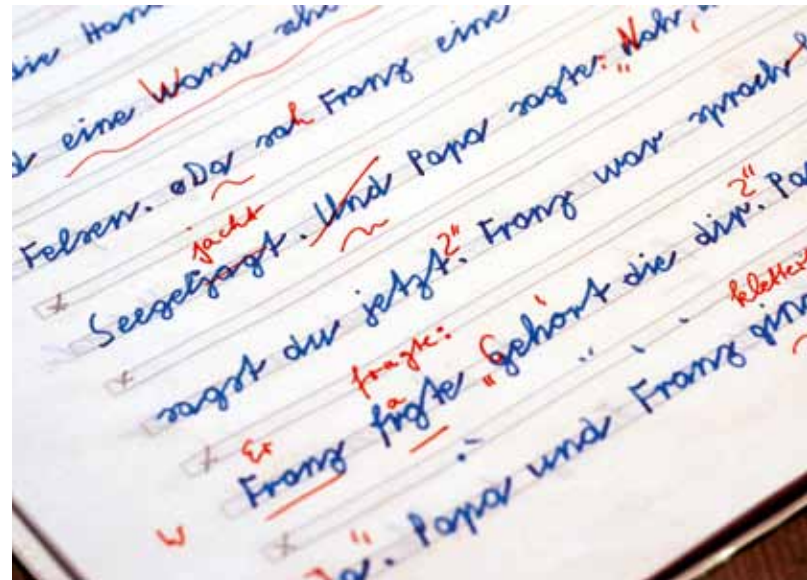 die Han
eine Wand
Felsen. Da sah Franz eine
jacht
Seegeljagt. Und Papa sagte: „Nah,
sagst du jetzt?" Franz war sprach
fragte:
Er
Franz frgte „Gehört die dir. Pa
a
kletter
W
Papa und Franz gin